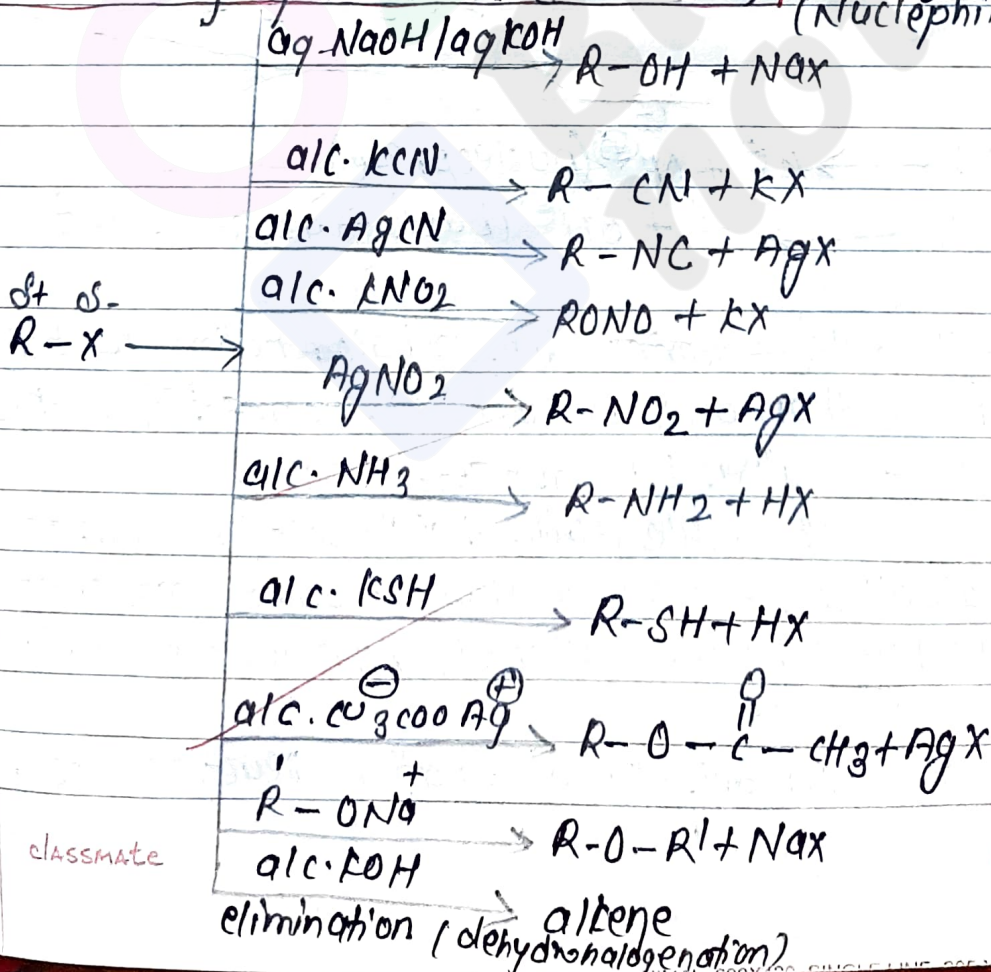 (Nucleophi
aq NaOH/aq KOH
R-OH + NaX
alc. KCN
R - CN + KX
alc. AgCN
R - NC + AgX
alc. KNO2
RONO + KX
δ+ δ-
R - X
AgNO2
R-NO2 + AgX
alc. NH3
R-NH2 + HX
alc. KSH
R-SH + HX
O
alc. CH3COO⊖ Ag⊕
R-O-C-CH3 + AgX
R' - ONa+
R-O-R' + NaX
classmate
alc. KOH
alkene
elimination (dehydrohalogenation)